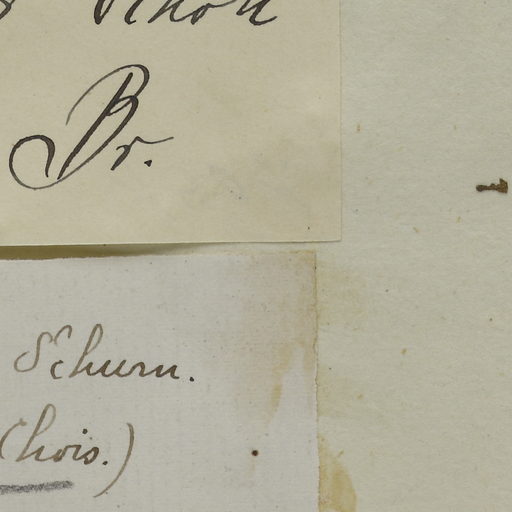 Br.
Schum.
(Chois.)